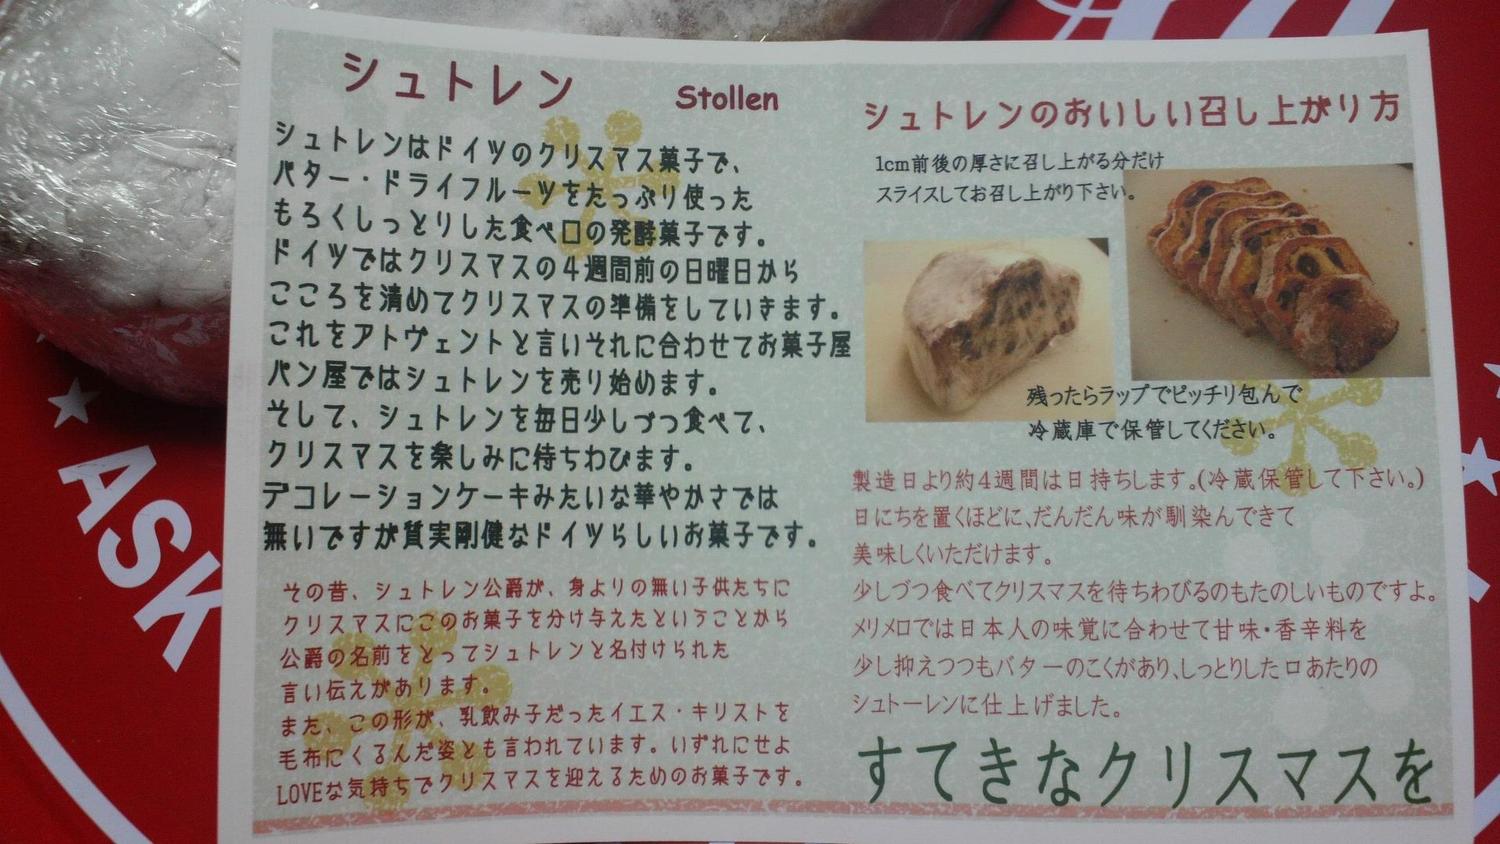 シュトレン Stollen
シュトレンはドイツのクリスマス菓子で、
バター・ドライフルーツをたっぷり使った
もろくしっとりした食べ口の発酵菓子です。
ドイツではクリスマスの4週間前の日曜日から
こころを清めてクリスマスの準備をしていきます。
これをアトヴェントと言いそれに合わせてお菓子屋
パン屋ではシュトレンを売り始めます。
そして、シュトレンを毎日少しづつ食べて、
クリスマスを楽しみに待ちわびます。
デコレーションケーキみたいな華やかさでは
無いですが質実剛健なドイツらしいお菓子です。
その昔、シュトレン公爵が、身よりの無い子供たちに
クリスマスにこのお菓子を分け与えたということから
公爵の名前をとってシュトレンと名付けられた
言い伝えがあります。
また、この形が、乳飲み子だったイエス・キリストを
毛布にくるんだ姿とも言われています。いずれにせよ
LOVEな気持ちでクリスマスを迎えるためのお菓子です。
シュトレンのおいしい召し上がり方
1cm前後の厚さに召し上がる分だけ
スライスしてお召し上がり下さい。
残ったらラップでピッチリ包んで
冷蔵庫で保管してください。
製造日より約4週間は日持ちします。(冷蔵保管して下さい。)
日にちを置くほどに、だんだん味が馴染んできて
美味しくいただけます。
少しづつ食べてクリスマスを待ちわびるのもたのしいものですよ。
メリメロでは日本人の味覚に合わせて甘味・香辛料を
少し抑えつつもバターのこくがあり、しっとりした口あたりの
シュトーレンに仕上げました。
すてきなクリスマスを
ASK